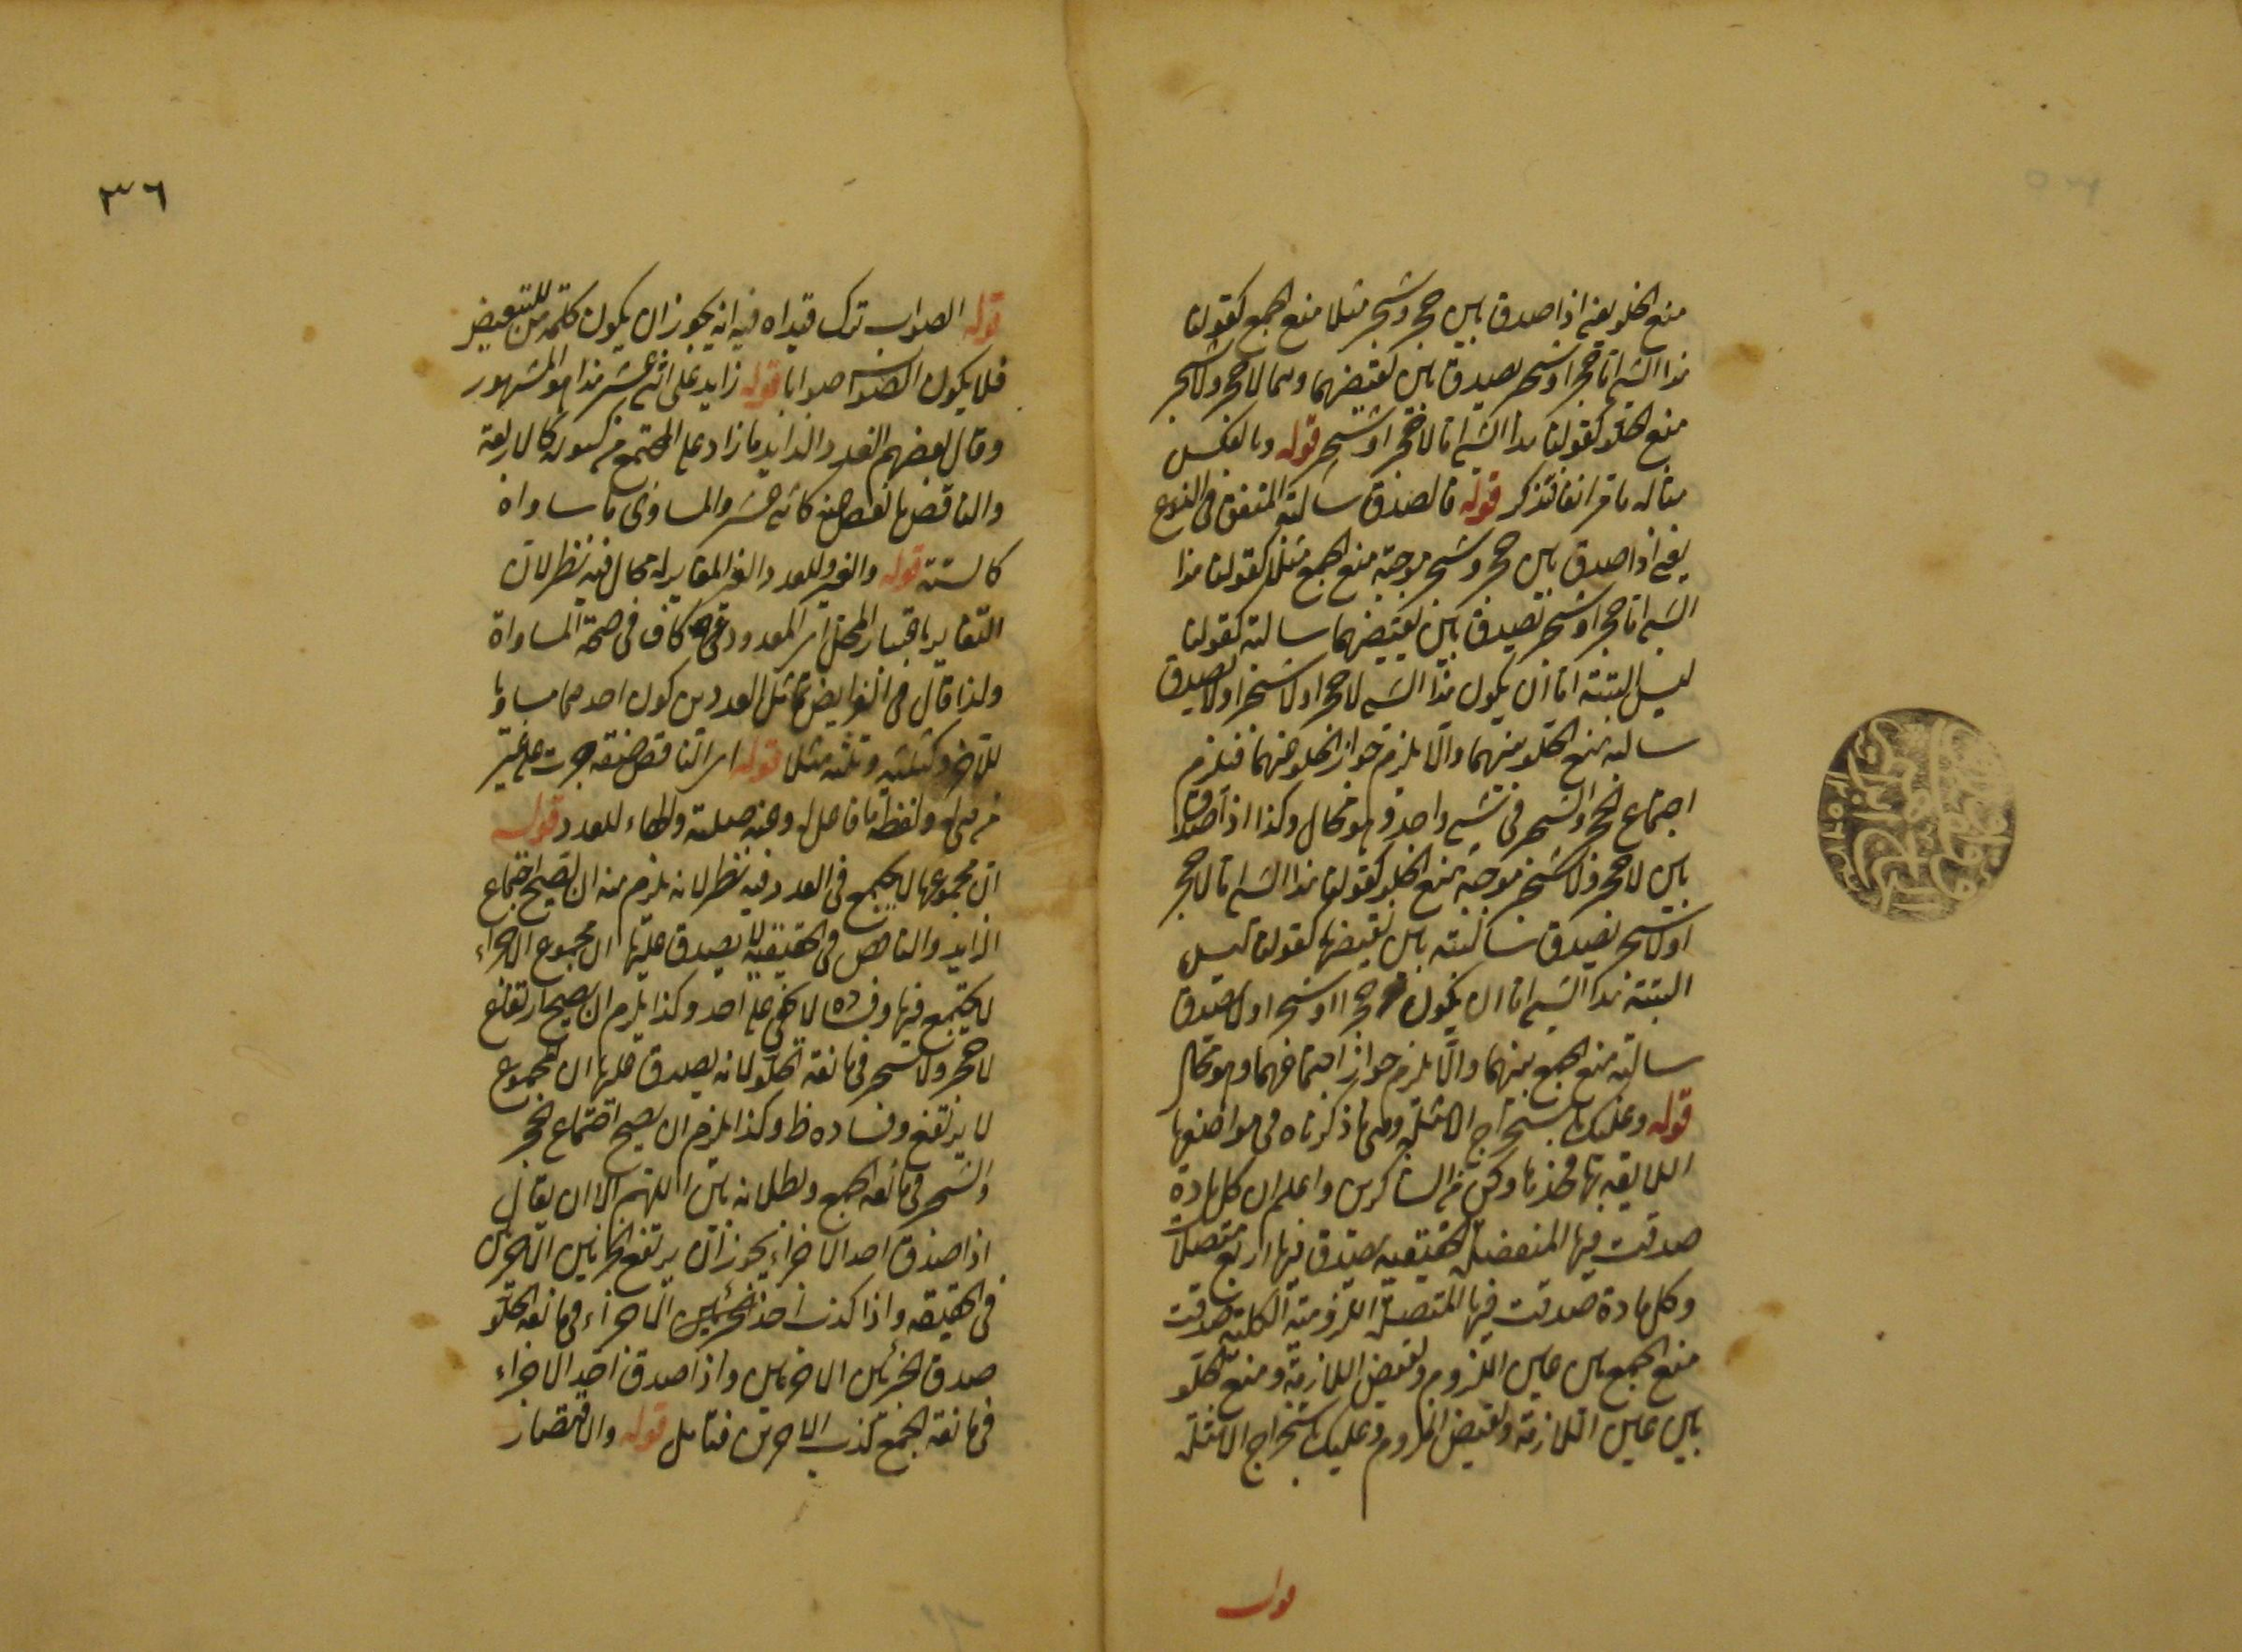 منع الخلو يعني اذا صدق بين حجر وشجر مثلا منع الجمع كقولنا
هذا الشيء اما حجر او شجر يصدق بين نقيضهما وهما لا حجر ولا شجر
منع الخلو كقولنا هذا الشيء اما لا حجر او لا شجر قوله وبالعكس
مثاله ما مر انفا فتذكر قوله فالصدق سالبة المتفق في النوع
يعني اذا صدق بين حجر وشجر موجبة منع الجمع مثلا كقولنا هذا
الشيء اما حجر او شجر تصدق بين نقيضهما سالبته كقولنا
ليس البتة اما ان يكون هذا الشيء لا حجر او لا شجر اولا يصدق
سالبة منع الخلو بينهما والا يلزم جواز الخلو عنهما فيلزم
اجتماع الحجر والشجر في شيء واحد وهو محال وكذا اذا صدق
بين لا حجر ولا شجر موجبة منع الخلو كقولنا هذا الشيء اما لا حجر
او لا شجر يصدق سالبته بين نقيضهما كقولنا ليس
البتة هذا الشيء اما ان يكون حجرا او شجرا ولا يصدق
سالبة منع الجمع بينهما والا يلزم جواز اجتماعهما وهو محال
قوله وعليك باستخراج الامثلة ومنها ذكرناه في مواضعها
اللايقة بها فخذها وكن من الشاكرين واعلم ان كل مادة
صدقت فيها المنفصلة الحقيقية صدق فيها اربع متصلات
وكل مادة صدقت فيها المتصلة اللزومية الكلية صدقت
منع الجمع بين عين اللزوم ونقيض اللازمة ومنع الخلو
بين عين اللازمة ونقيض الملزوم وعليك باستخراج الامثلة
قوله
٣٦
قوله الصواب ترك قيد اه فيه انه يجوز ان يكون كلمة من للتبعيض
فلا يكون الصواب صوابا قوله زايد على اثني عشر هذا هو المشهور
وقال بعضهم العدد الزايد ما زاد على المجتمع من كسوره كالاربعة
والناقص ما نقص عنه كاثني عشر والمساوي ما ساواه
كالستة قوله والغير وللعدد الغير المغاير له محال فيه نظر لان
التغاير باعتبار المحل اي المعدود كاف في صحة المساواة
ولذا قال في الفرايض تماثل العددين كون احدهما مساويا
للآخر كثلثة وثلثة مثلا قوله اي الناقص صفة جرت على غير
من هي له ولفظة ما فاعله وعنه صلته والهاء للعدد قوله
ان مجموعها لا يجتمع في العدد فيه نظر لانه يلزم منه ان يصح اجتماع
الزايد والناقص في الحقيقية لانه يصدق عليها ان مجموع الاجزاء
لا يجتمع فيها وفساده لا يخفى على احد وكذا يلزم ان يصح ارتفاع
لا حجر ولا شجر في مانعة الخلو لانه يصدق عليها ان المجموع
لا يرتفع وفساده ظ وكذا يلزم ان يصح اجتماع الحجر
والشجر في مانعة الجمع وبطلانه بين اللهم الا ان يقال
اذا صدق احد الاجزاء يجوز ان يرتفع الجزئين الاخرين
في الحقيقة واذا كذب احد الجزئين الاجزاء في مانعة الخلو
صدق الجزئين الاخرين واذا صدق احد الاجزاء
في مانعة الجمع كذب الاخرين فتامل قوله والاقتصار